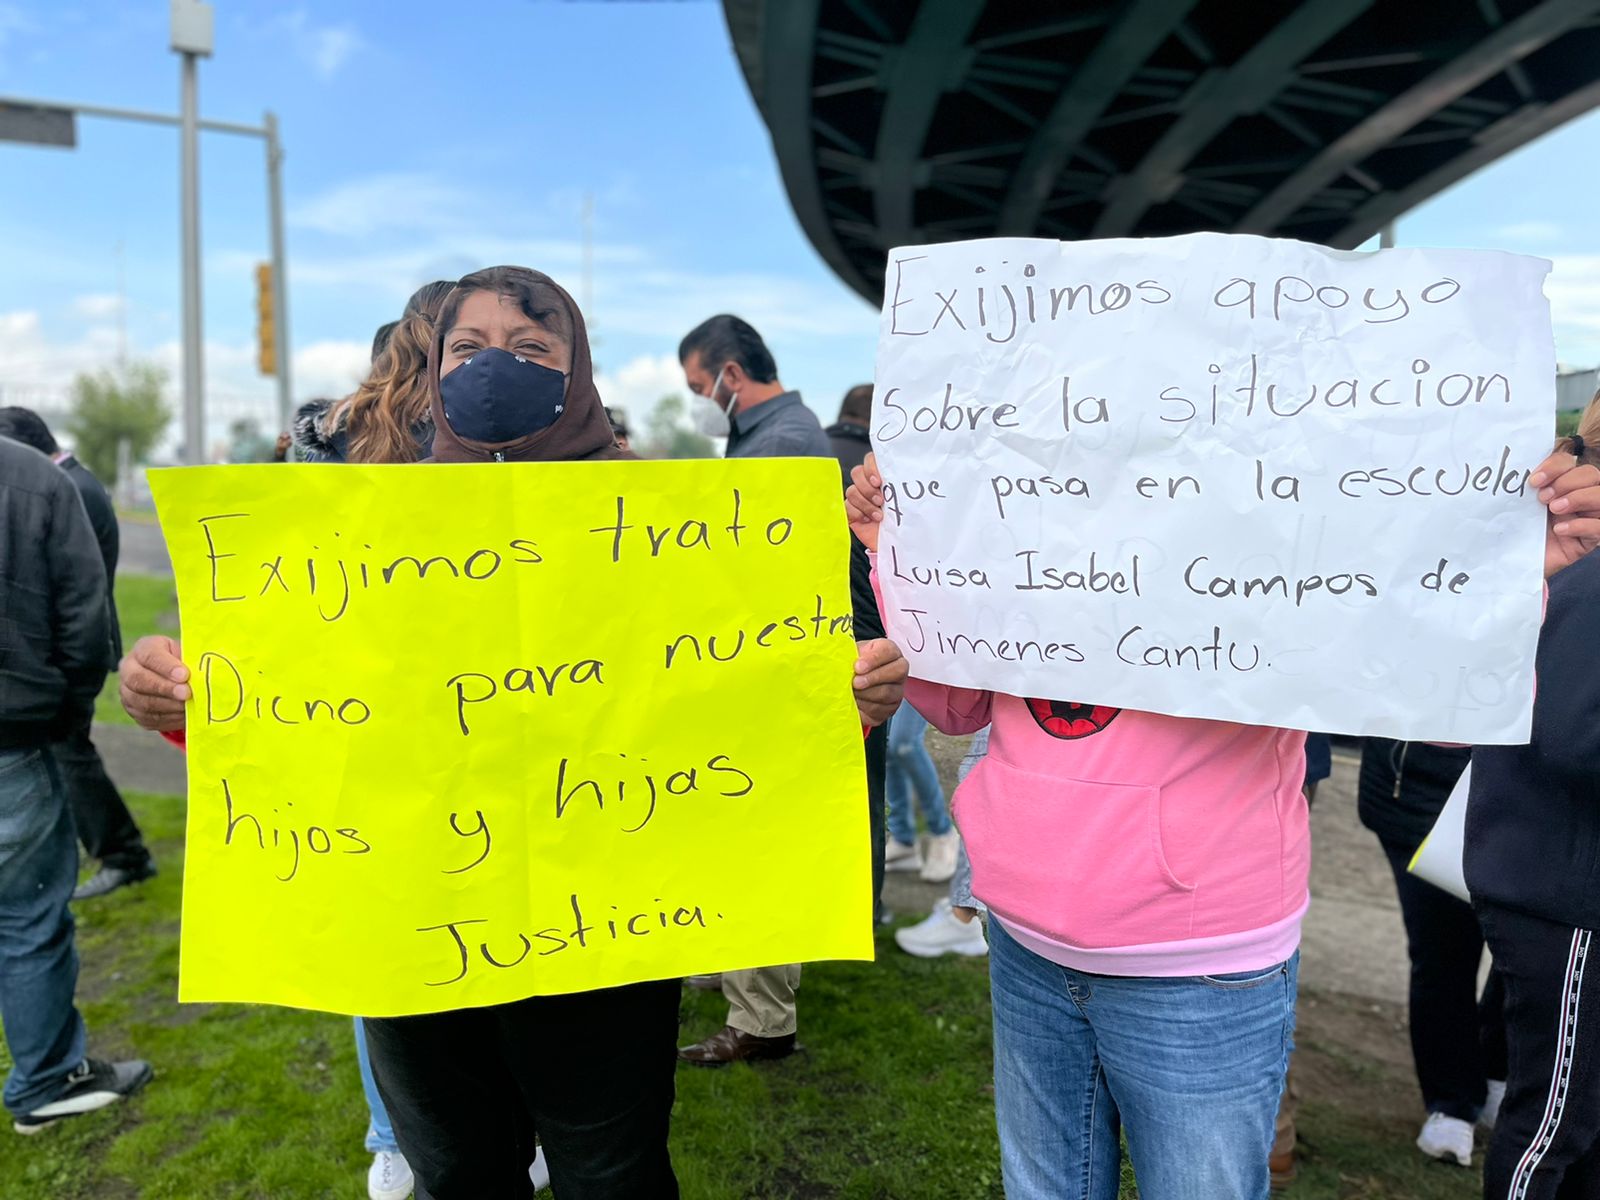 Exijimos trato
Dicno para nuestros
hijos y hijas
Justicia.
Exijimos apoyo
Sobre la situacion
que pasa en la escuela
Luisa Isabel Campos de
Jimenes Cantu.